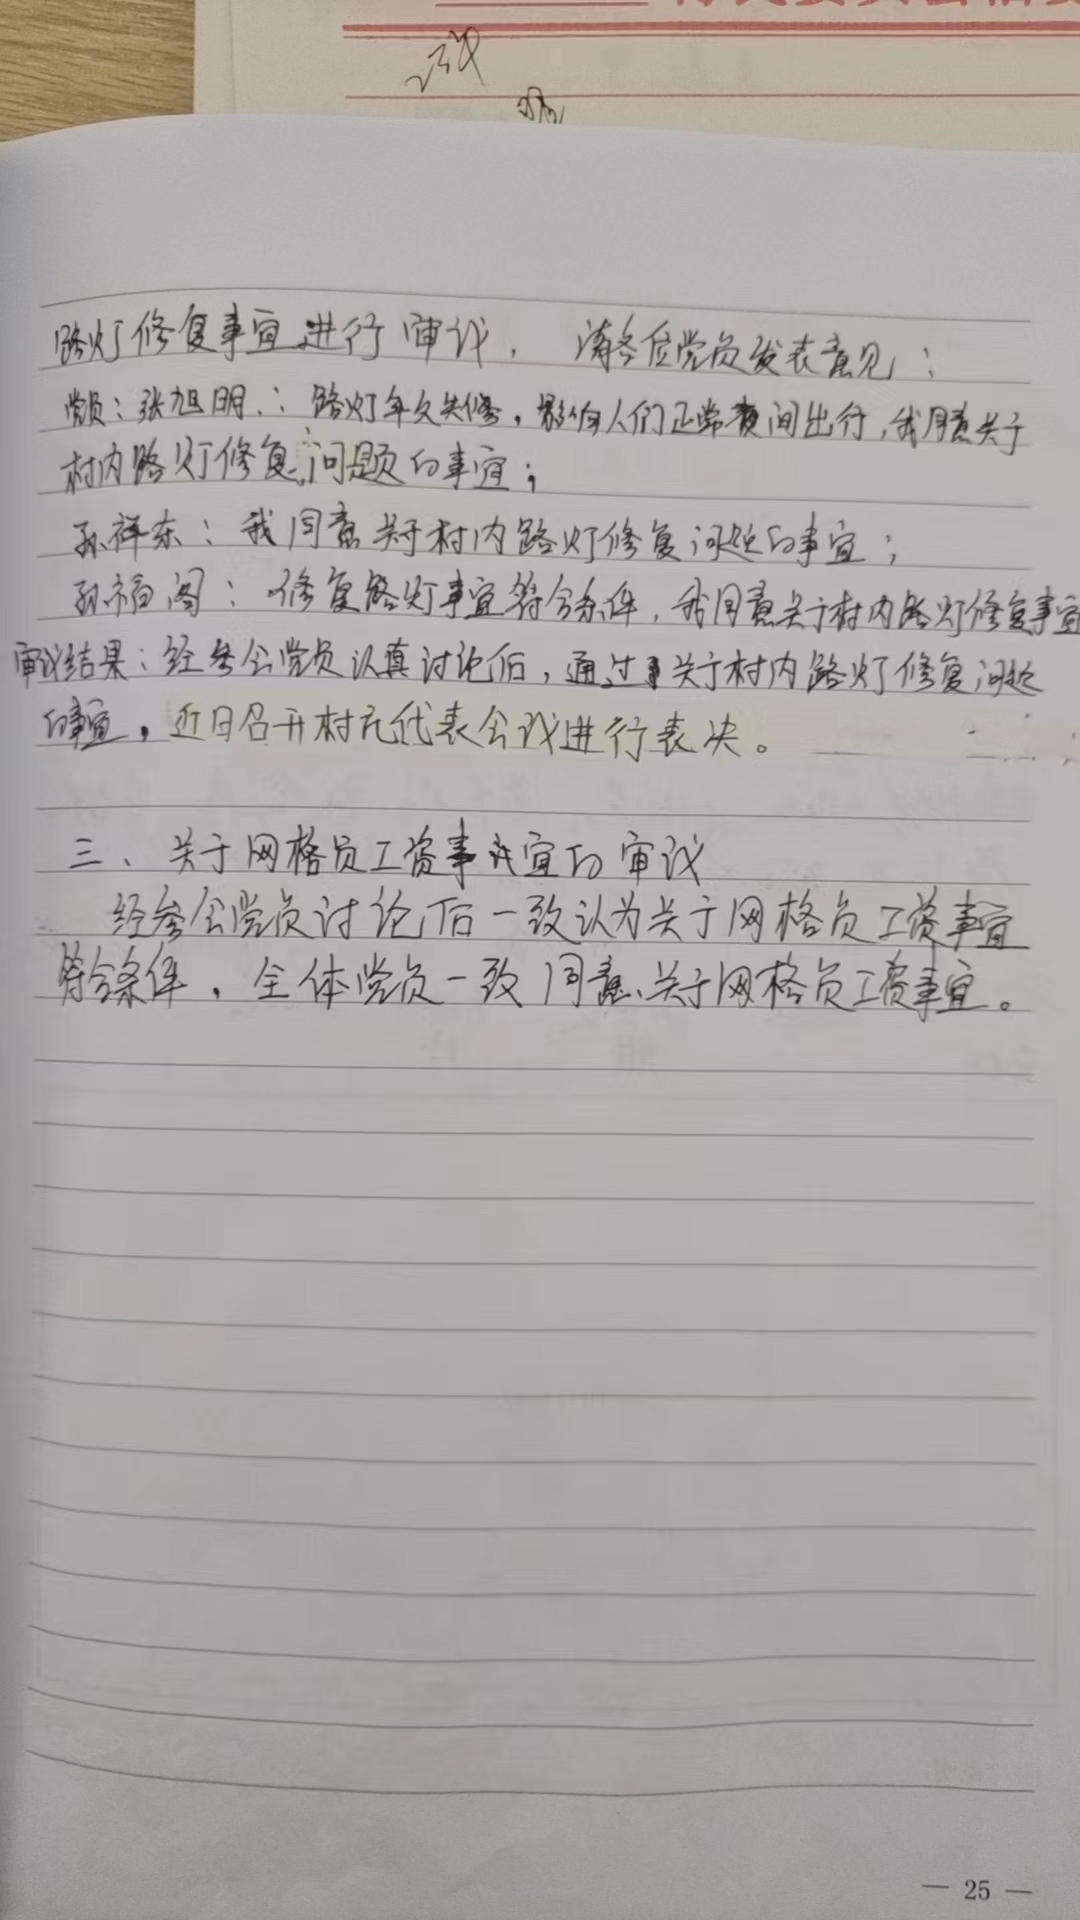 路灯修复事宜进行审议，请各位党员发表意见：
党员：张旭明：路灯年久失修，影响人们正常夜间出行，我同意关于
村内路灯修复问题的事宜；
孙祥东：我同意关于村内路灯修复问题的事宜；
孙福阁：修复路灯事宜符合条件，我同意关于村内路灯修复事宜
审议结果：经参会党员认真讨论后，通过关于村内路灯修复问题
的事宜，近日召开村民代表会议进行表决。
三、关于网格员工资事宜的审议
经参会党员讨论后一致认为关于网格员工资事宜
符合条件，全体党员一致同意关于网格员工资事宜。
— 25 —